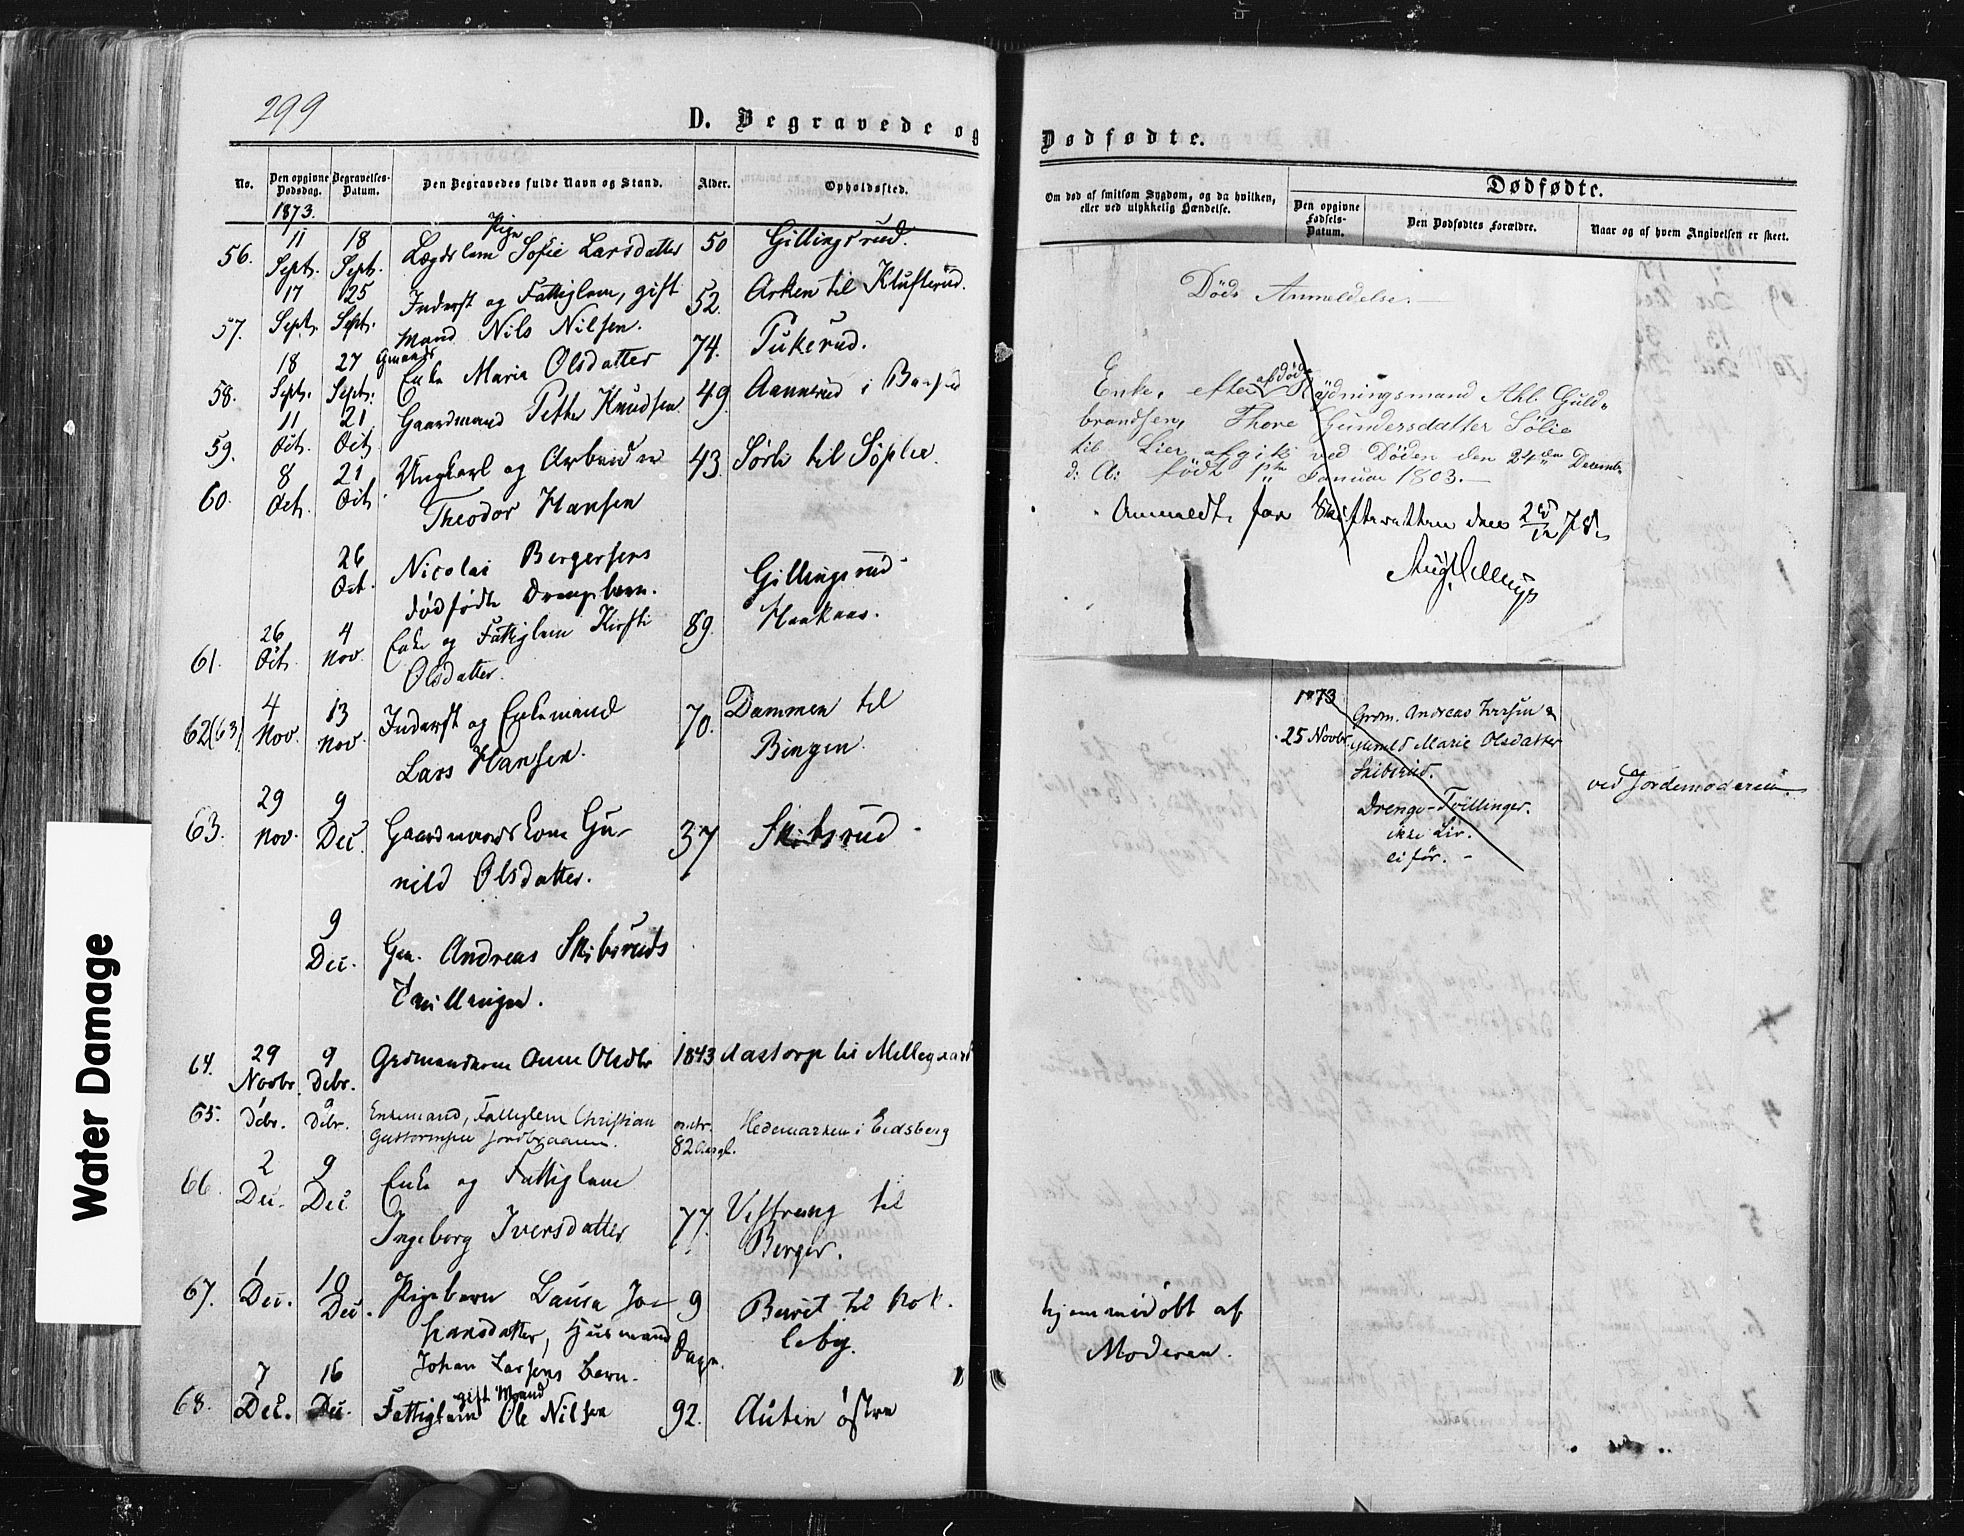 299
D. Begravede og
Dødfødte.
No.
Den opgivne Dødsdag.
Begravelses-Datum.
Den Begravedes fulde Navn og Stand.
Alder.
Opholdssted.
1873.
56. 11 Sept. 18 Sept. Lægdslem Pige Sofie Larsdatter 50 Gillingsrud.
57. 17 Sept. 25 Sept. Inderst og Fattiglem, gift 52. til Klufterud.
Mand Nils Nilsen.
58. 18 Sept. 27 Sept. Enke Maria Olsdatter 74. Tukerud.
59. 11 Oct. 21 Oct. Gaardmand Petter Knudsen 49. i
60. 8 Oct. 21 Oct. Ungkarl og Arbeider 43. til
Theodor Hansen
26 Oct. Nicolai Bergersens Gillingsrud
dødfødte Drengebarn.
61. 26 Oct. 4 Nov Enke og Fattiglem Kirsti 89. Haakaas.
Olsdatter.
62(63) 4 Nov. 13 Nov. Inderst og Enkemand 70. Dammen til
Lars Hansen. Bingen.
63. 29 Nov. 9 Dec. Gaardmandskone Gu- 37 Skibsrud
nild Olsdatter.
9 Dec. Gm. Andreas Skibsruds
Tvillinger.
64. 29 Novbr. 9 Decbr. Grdmandskone Anne Olsdtr 1843 Aastorp til Millegaard
65. 1 Decbr. 9 Decbr. Enkemand, Fattiglem Christian omtr. Hedemarken i Eidsberg
Guttormsen 82 Aar gl.
66. 2 Dec. 9 Dec Enke og Fattiglem
Ingeborg Iversdatter 77. Vestreng til
Berger.
67. 1 Dec. 10 Dec. Pigebarn Laura Jo- 9 til Rok-
hansdatter, Husmand Dage. keby.
Johan Larsens Barn.
68. 7 Dec. 16 Dec. Fattiglem gift Mand Ole Nilsen 92. Auten østre
Om død af smitsom Sygdom, og da hvilken, eller ved ulykkelig Hændelse.
Dødfødte.
Den opgivne Fødsels-Datum.
Den Dødfødtes Forældre.
Naar og af hvem Angivelsen er skeet.
Døds Anmeldelse.
Enke, efter afdøde Rydningsmand Ahl. Guld-
brandsen, Thore Gundersdatter Sølie
til Lier afgik ved Døden den 24de Decembr
d: A: født 1ste Januar 1803.
Anmeldt for Skifteretten den
1873
25 Novbr. Grdm. Andreas Iversen &
Gunild Marie Olsdatter
Skibsrud.
Drenge-Tvillinger.
ikke Liv.
ei før.
ved Jordemoderen.
hjemmedøbt af
Moderen.
Water Damage